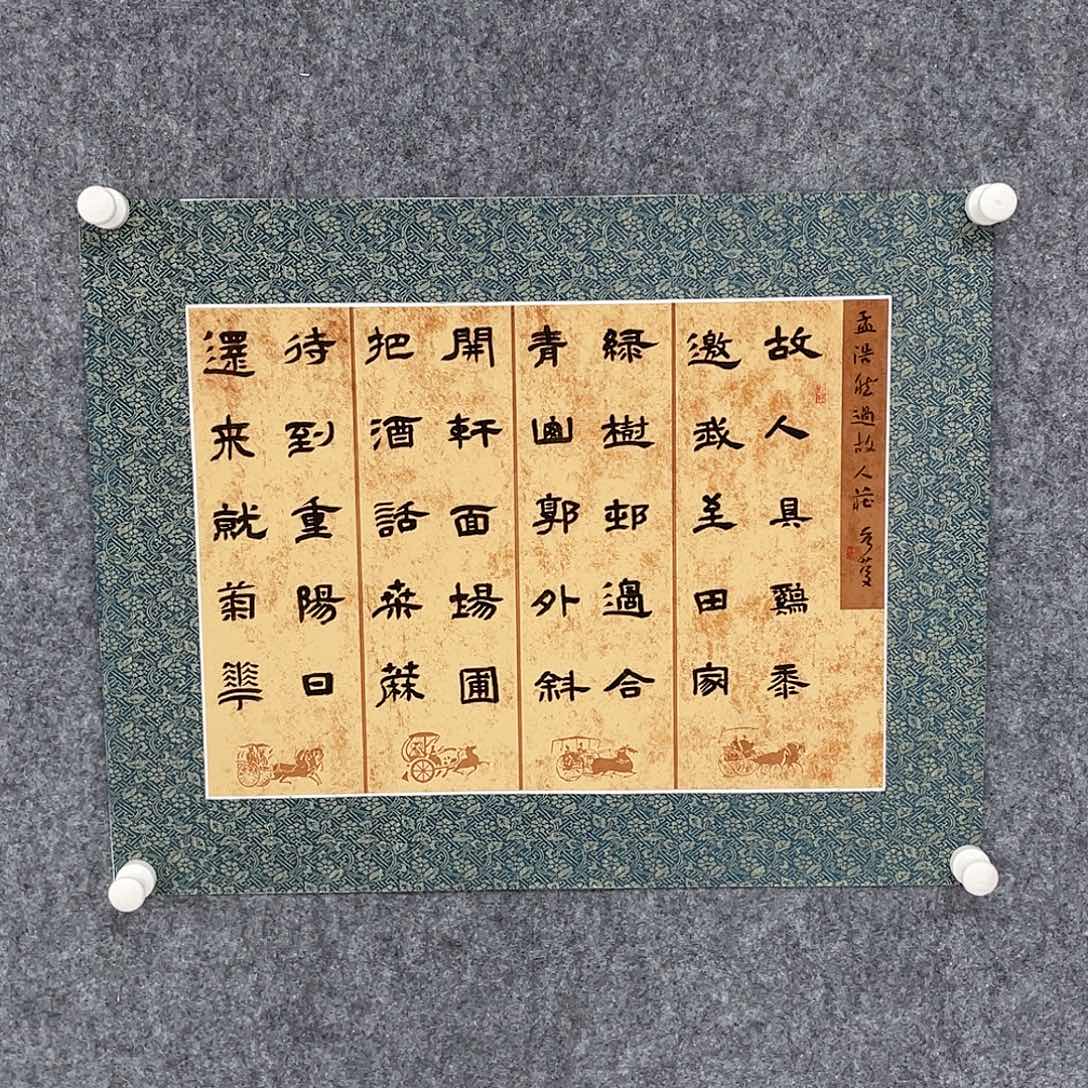 孟浩然過故人莊
故人具鷄黍
邀我至田家
緑樹邨邊合
青山郭外斜
開軒面場圃
把酒話桒蔴
待到重陽日
還来就菊華